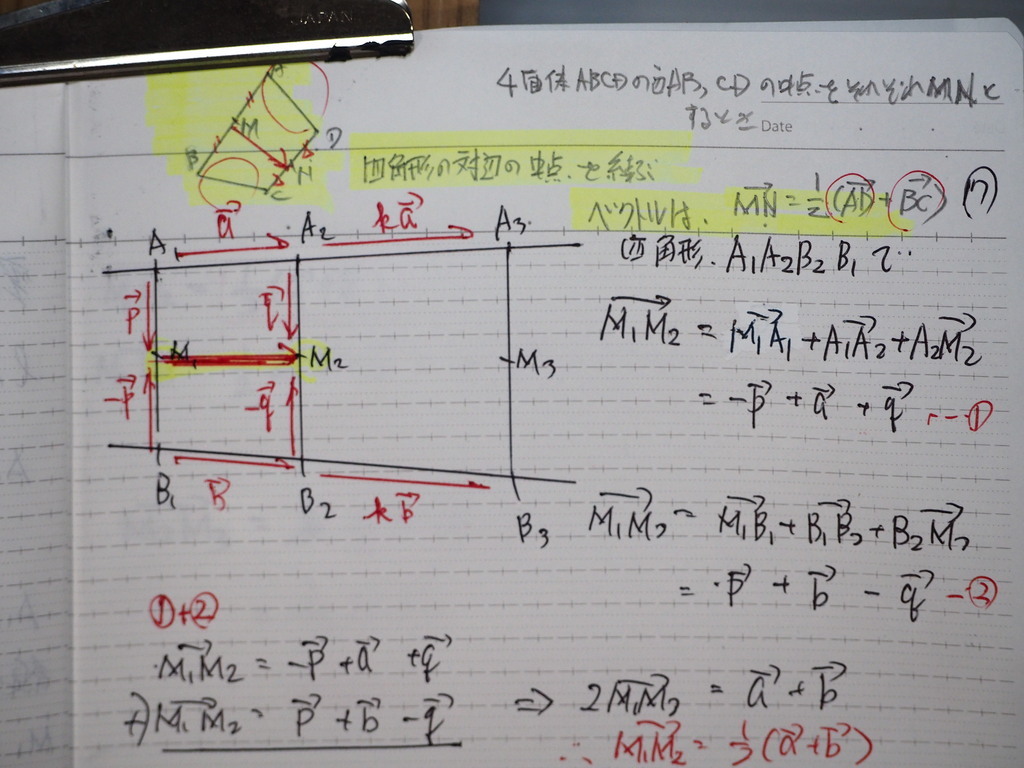 JAPAN
4面体ABCDの辺AB, CDの中点をそれぞれMNと
するとき
Date
A
M
B
D
N
C
四角形の対辺の中点を結ぶ
ベクトルは、 MN→ = 1/2 (AD→ + BC→)
四角形 A₁A₂B₂B₁で‥
A a→ A₂ ka→ A₃
p→ q→
M₁ M₂ M₃
-p→ -q→
B₁ b→ B₂ kb→ B₃
M₁M₂→ = M₁A₁→ + A₁A₂→ + A₂M₂→
= -p→ + a→ + q→ --①
M₁M₂→ = M₁B₁→ + B₁B₂→ + B₂M₂→
= p→ + b→ - q→ -②
①+②
M₁M₂→ = -p→ + a→ + q→
+) M₁M₂→ = p→ + b→ - q→ ⇒ 2M₁M₂→ = a→ + b→
∴ M₁M₂→ = 1/2 (a→ + b→)